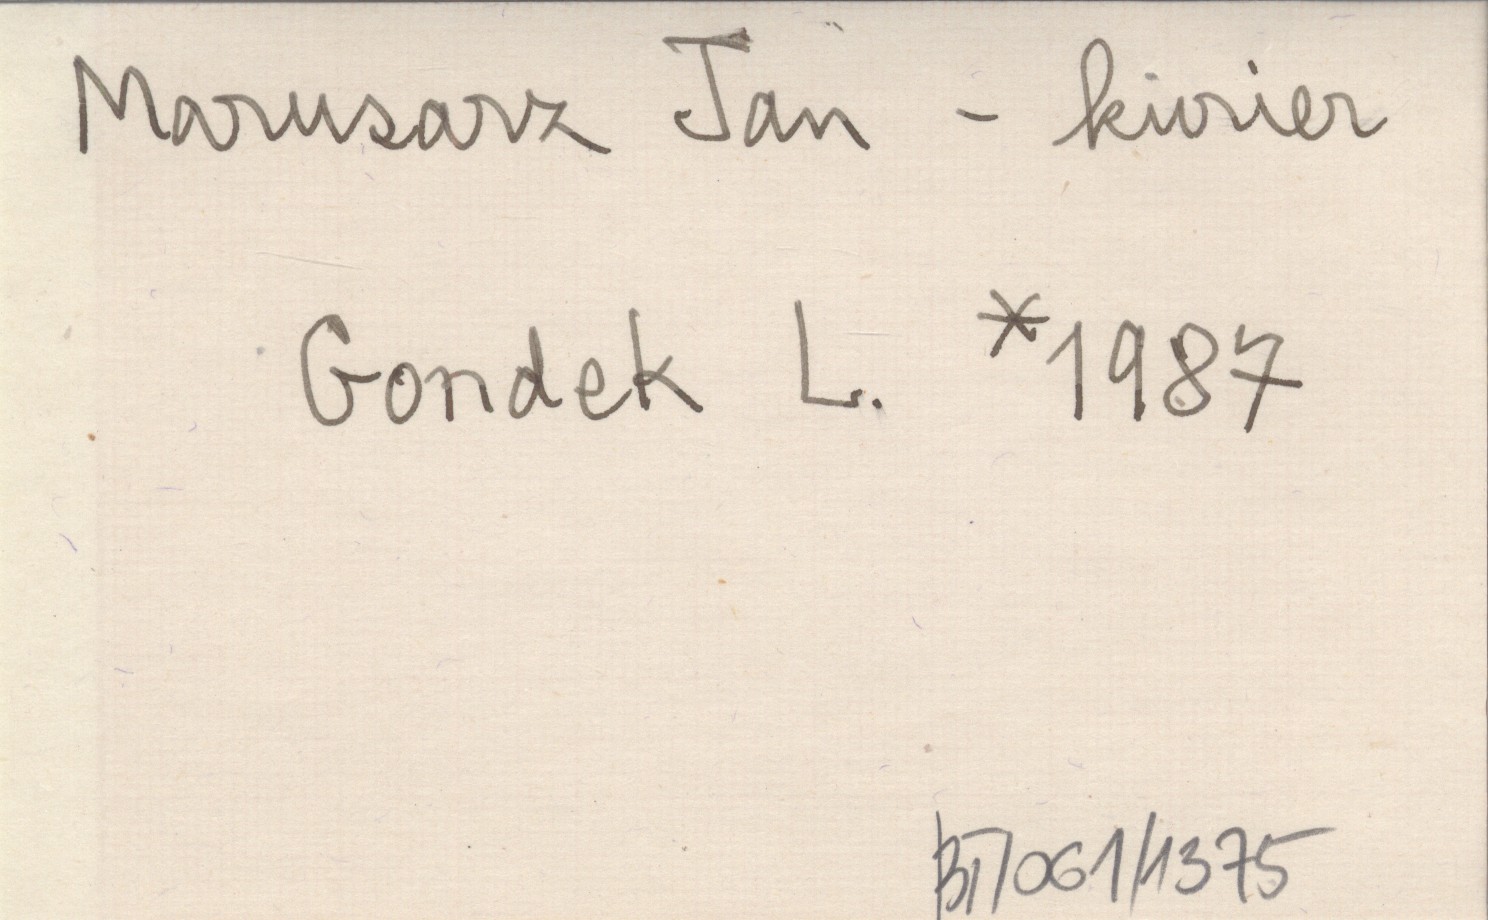 Marusarz Jan - kurier
Gondek L. *1987
BI/061/1375